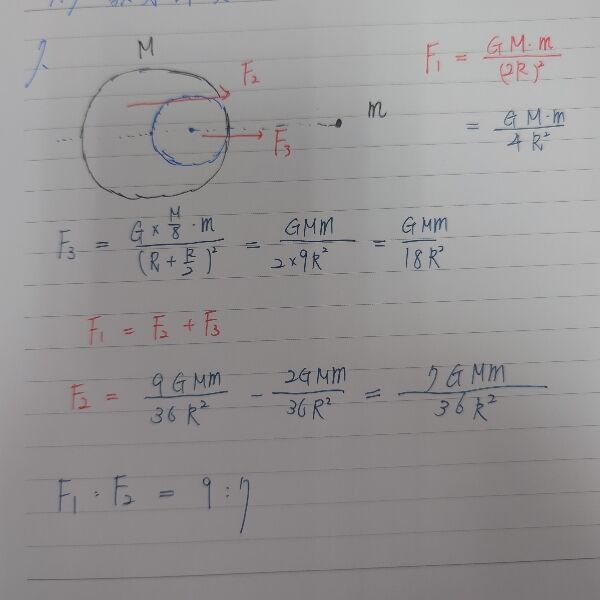 2.
M
F₂
m
F₃
F₁ = \frac{GM·m}{(2R)²}
= \frac{GM·m}{4R²}
F₃ = \frac{G × \frac{M}{8} · m}{(R + \frac{R}{2})²} = \frac{GMm}{2×9R²} = \frac{GMm}{18R²}
F₁ = F₂ + F₃
F₂ = \frac{9GMm}{36R²} - \frac{2GMm}{36R²} = \frac{7GMm}{36R²}
F₁ : F₂ = 9 : 7